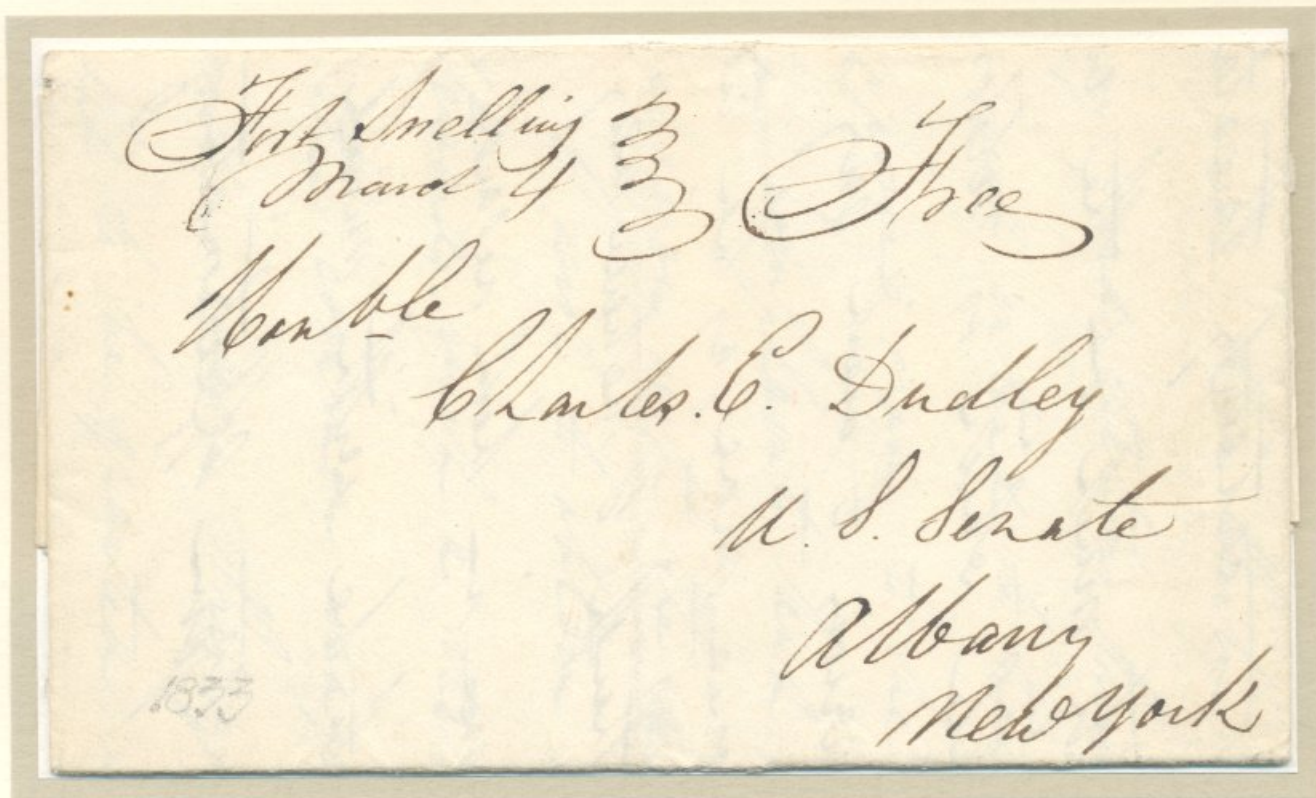 Fort Snelling
March 4
Free
Honble
Charles. E. Dudley
U. S. Senate
Albany
New York
1833